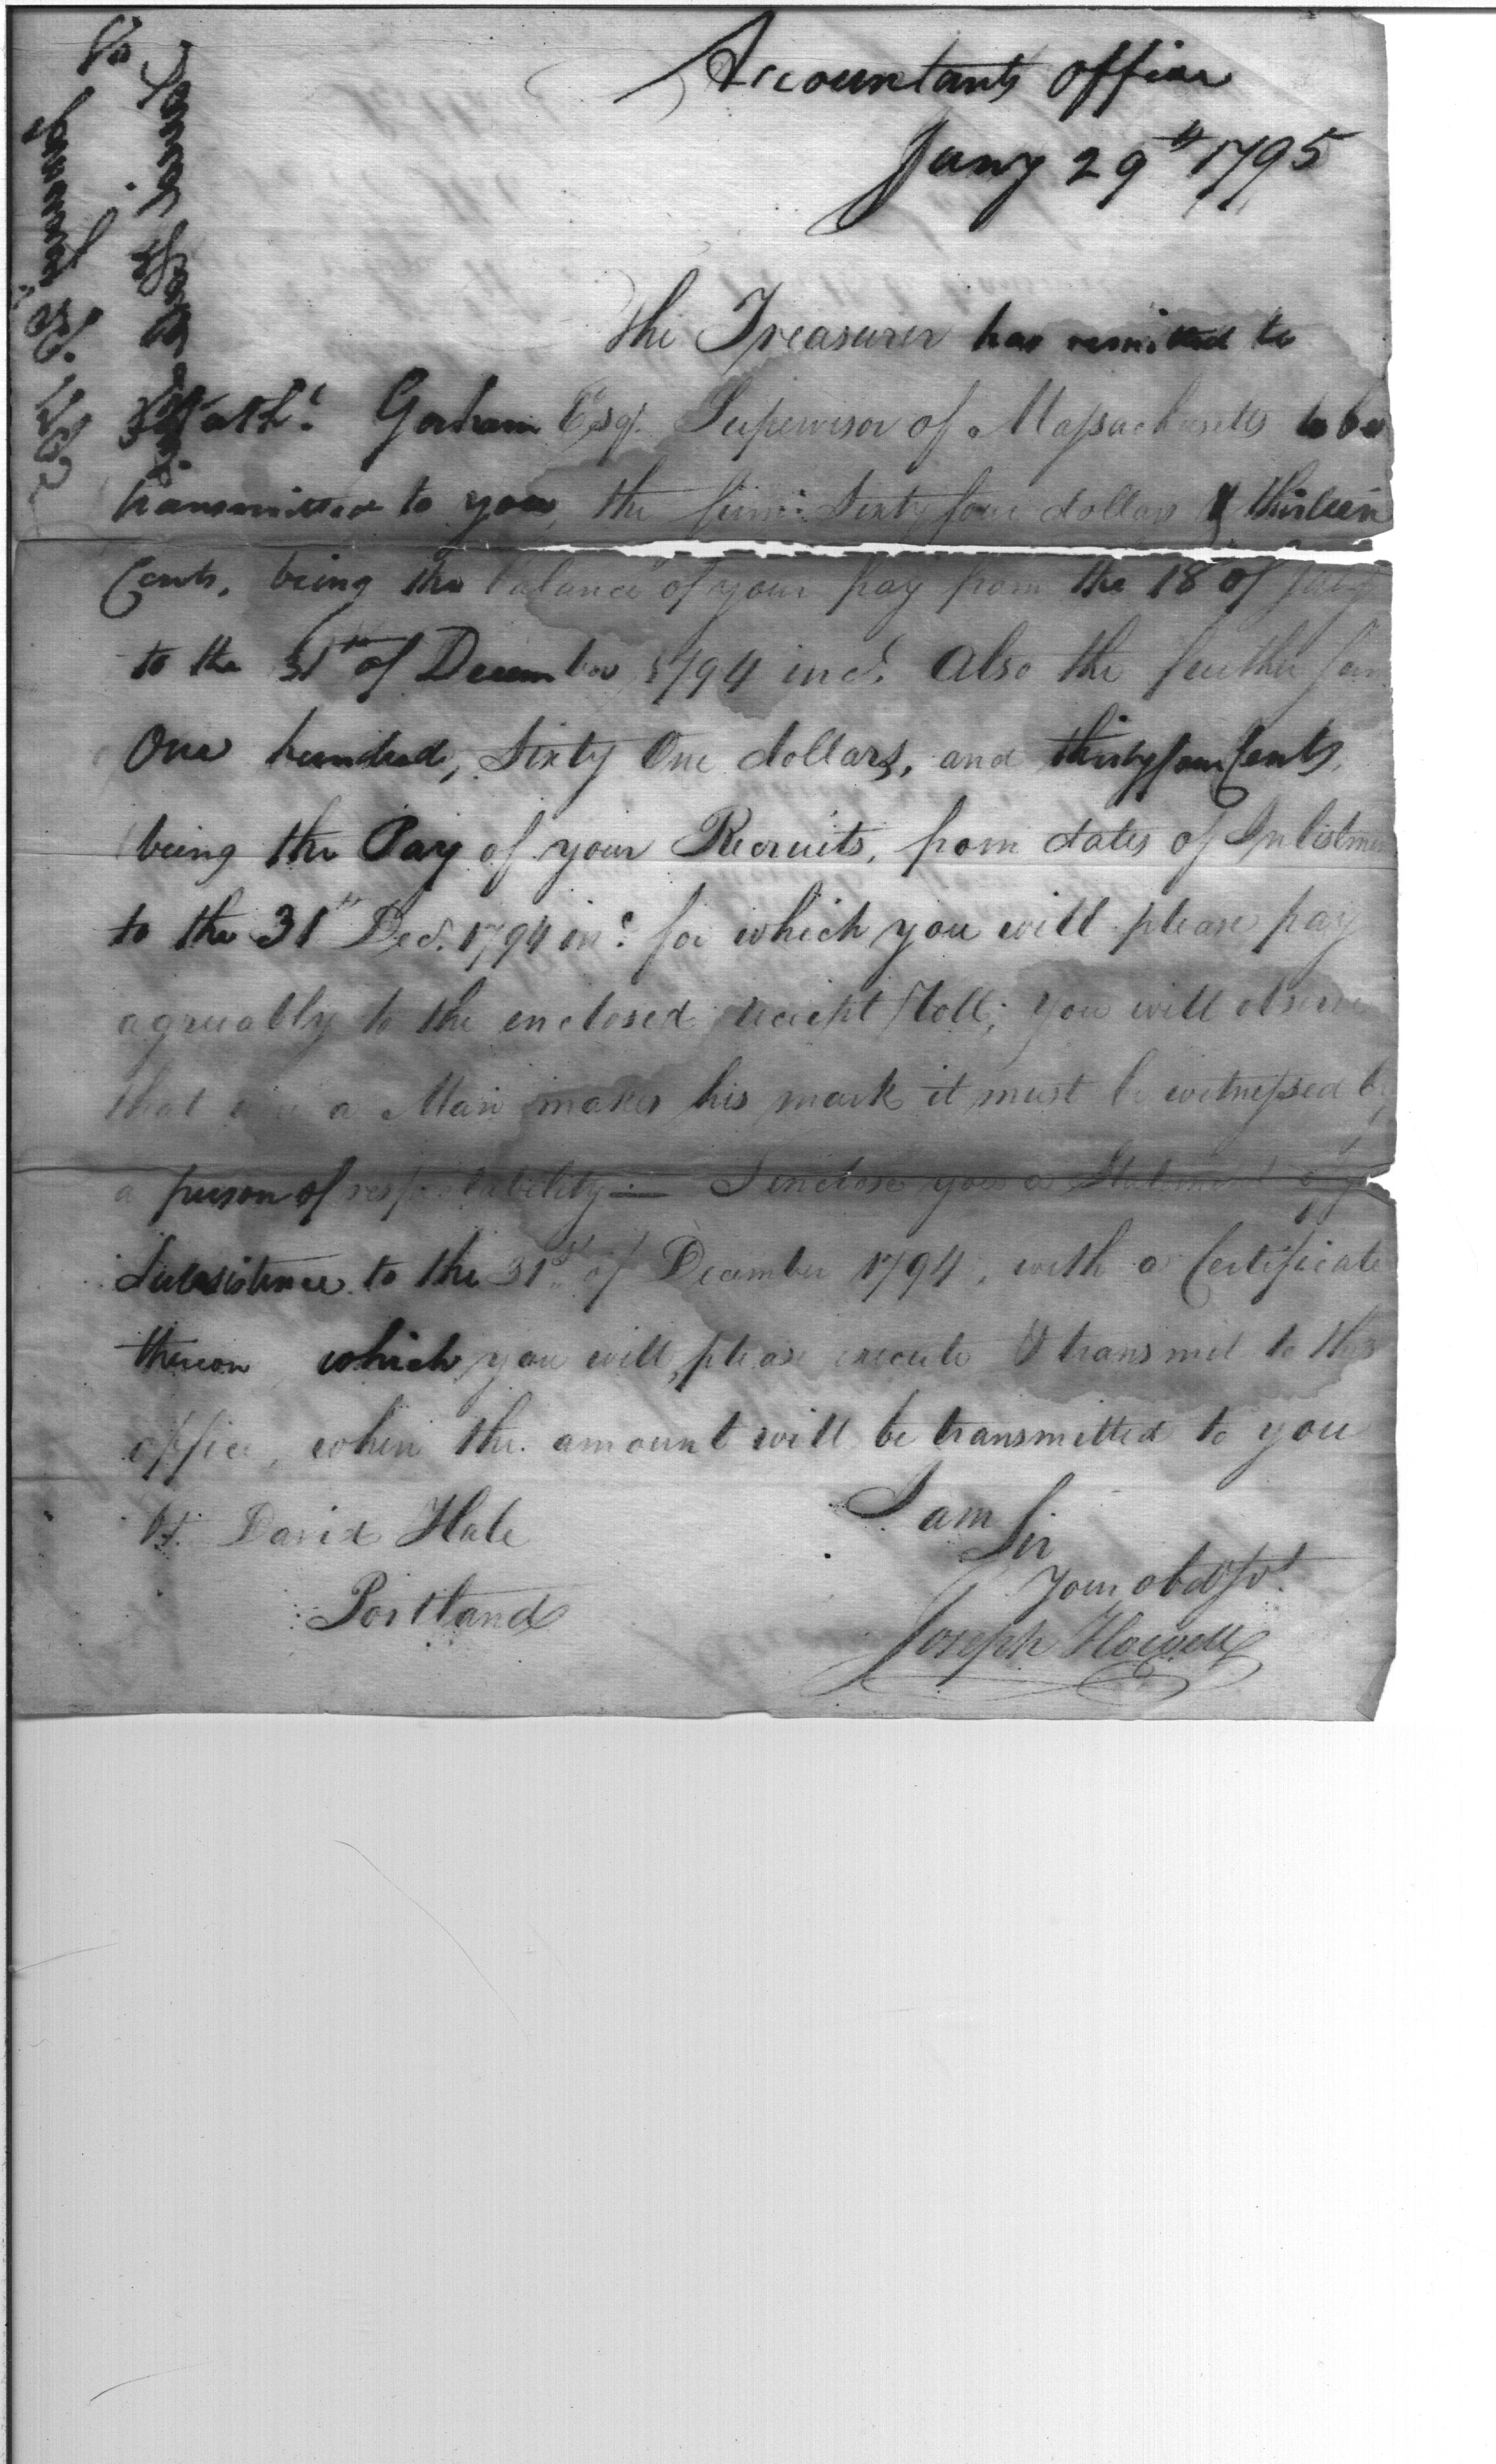 Accountants Office
Jany 29th 1795
The Treasurer has remitted to
Nathl. Gorham Esqr. Supervisor of Massachusetts to be
transmitted to you, the sum: Sixty four dollars & thirteen
Cents, being the balance of your pay from the 18 of July
to the 31st of December 1794 incl. Also the further sum
One hundred, Sixty One dollars, and thirty four Cents,
being the Pay of your Recruits, from dates of Inlistmen
to the 31st Decr. 1794 inc. for which you will please pay
agreeably to the enclosed receipt Roll; You will observe
that a Man makes his mark it must be witnessed by
a person of respectability — I enclose you a Statement of
Subsistence to the 31st of December 1794, with a Certificate
thereon which you will please execute & transmit to this
office, when the amount will be transmitted to you
I am
Sir
Your obdt Svt.
Joseph Howell
Lt. David Hale
Portland